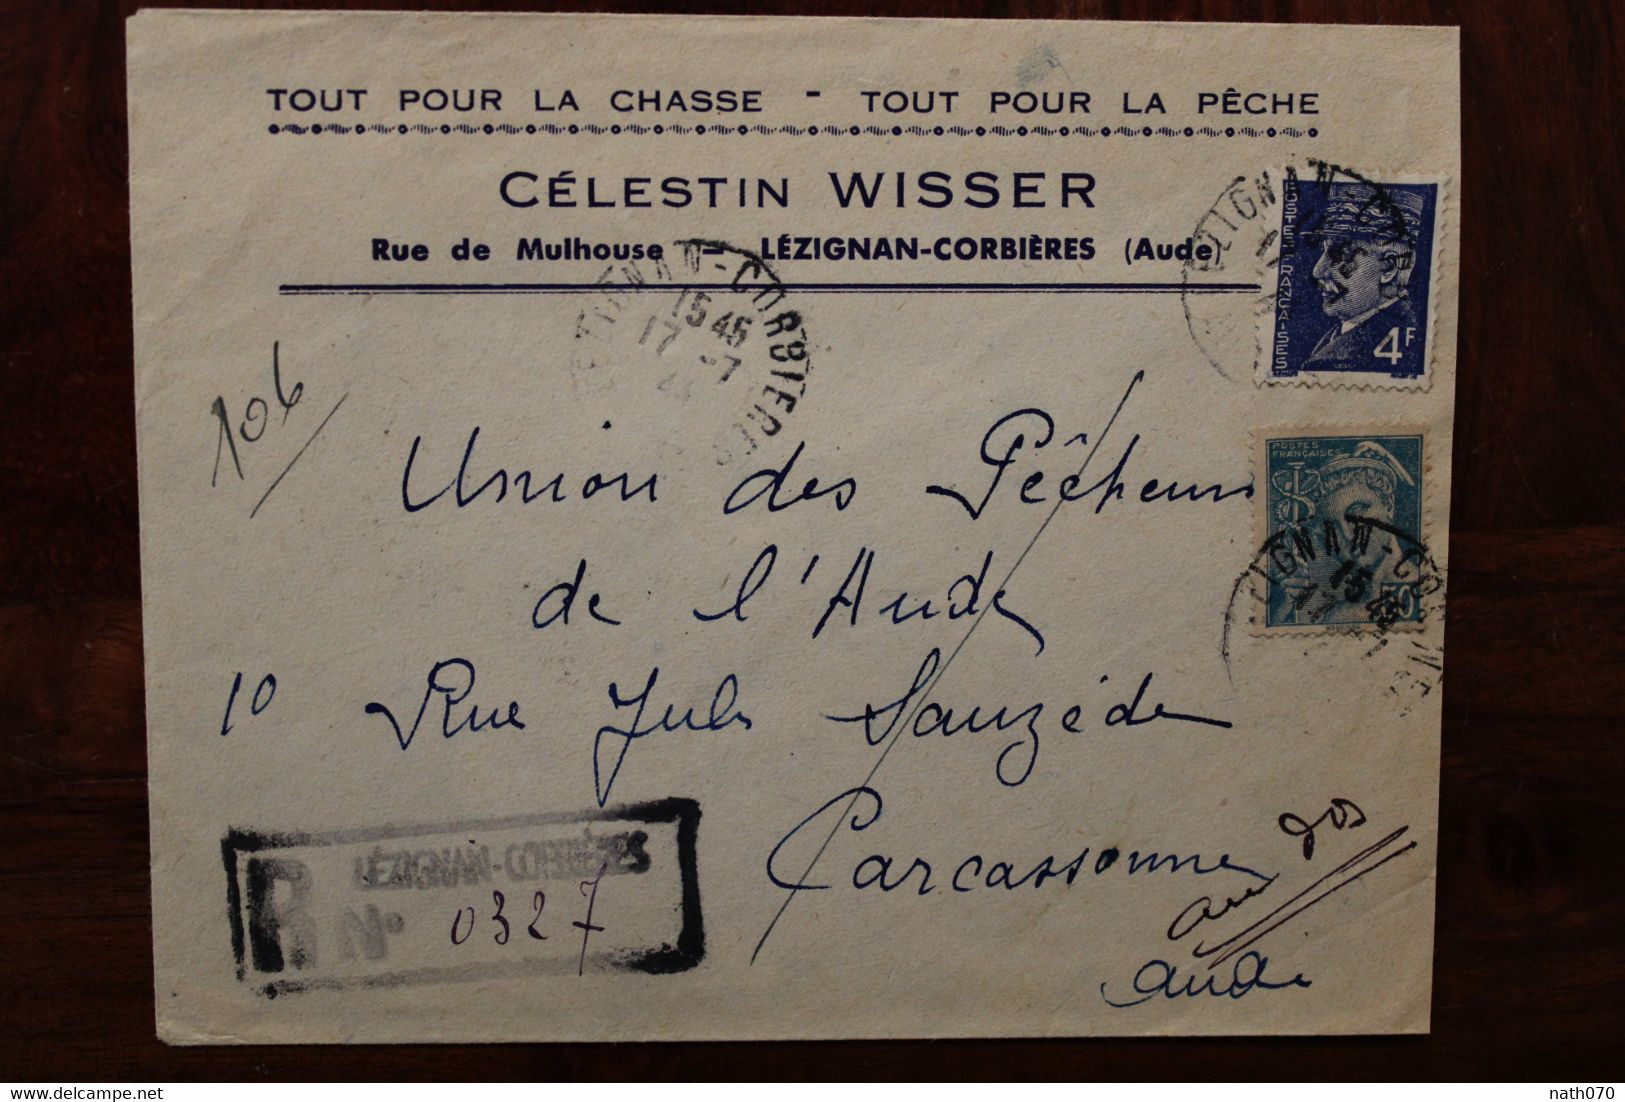 TOUT POUR LA CHASSE - TOUT POUR LA PÊCHE
CÉLESTIN WISSER
Rue de Mulhouse — LÉZIGNAN-CORBIÈRES (Aude)
POSTES FRANÇAISES
4F
POSTES
FRANÇAISES
50
15 45
17 -7
106
Union des Pêcheurs
de l'Aude
10 Rue Jules Sauzède
Carcassonne
Aude
au dos
R LÉZIGNAN-CORBIÈRES
N° 0327
nath070